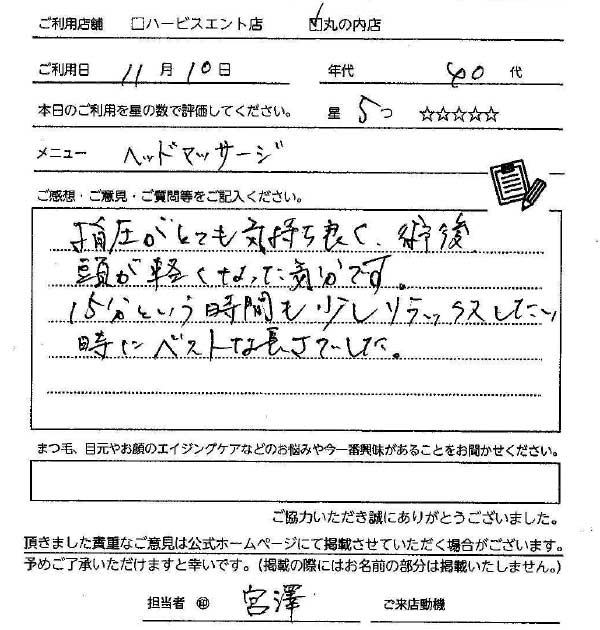 ご利用店舗 □ハービスエント店 ☑丸の内店
ご利用日 11月10日 年代 40代
本日のご利用を星の数で評価してください。 星 5つ ☆☆☆☆☆
メニュー ヘッドマッサージ
ご感想・ご意見・ご質問等をご記入ください。
指圧がとても気持ち良く、術後
頭が軽くなった気分です。
15分という時間も少しリラックスしたい
時にベストな長さでした。
まつ毛、目元やお顔のエイジングケアなどのお悩みや今一番興味があることをお聞かせください。
ご協力いただき誠にありがとうございました。
頂きました貴重なご意見は公式ホームページにて掲載させていただく場合がございます。
予めご了承いただけますと幸いです。（掲載の際にはお名前の部分は掲載いたしません。）
担当者 ㊞ 宮澤 ご来店動機